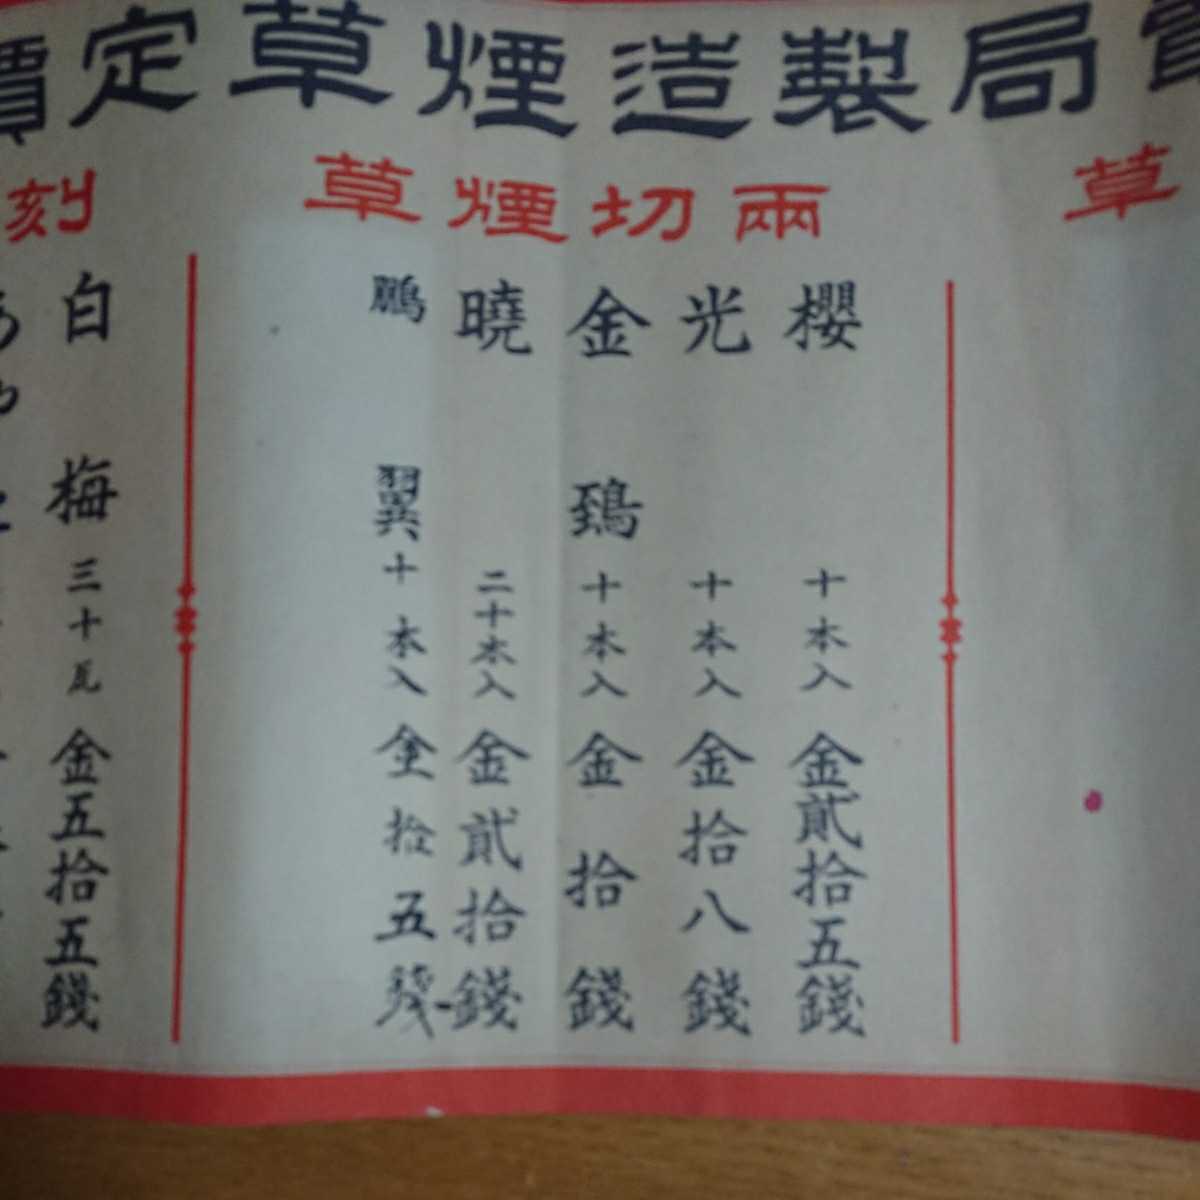 局製造煙草定價
草
兩切煙草
櫻 十本入 金貳拾五錢
光 十本入 金拾八錢
金鵄 十本入 金拾錢
曉 二十本入 金貳拾錢
鵬翼 十本入 金拾五錢
刻
白梅 三十瓦 金五拾五錢